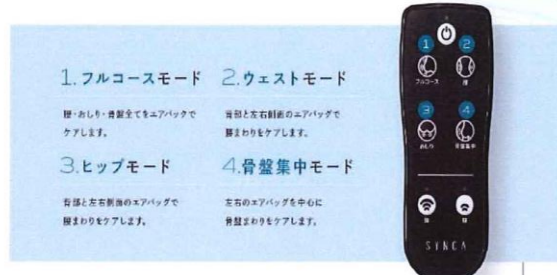 1.フルコースモード
腰・おしり・骨盤全てをエアバックで
ケアします。
2.ウェストモード
背部と左右側面のエアバッグで
腰まわりをケアします。
3.ヒップモード
背部と左右側面のエアバッグで
腰まわりをケアします。
4.骨盤集中モード
左右のエアバッグを中心に
骨盤まわりをケアします。
1
2
フルコース
腰
3
4
おしり
骨盤集中
強
弱
SYNCA